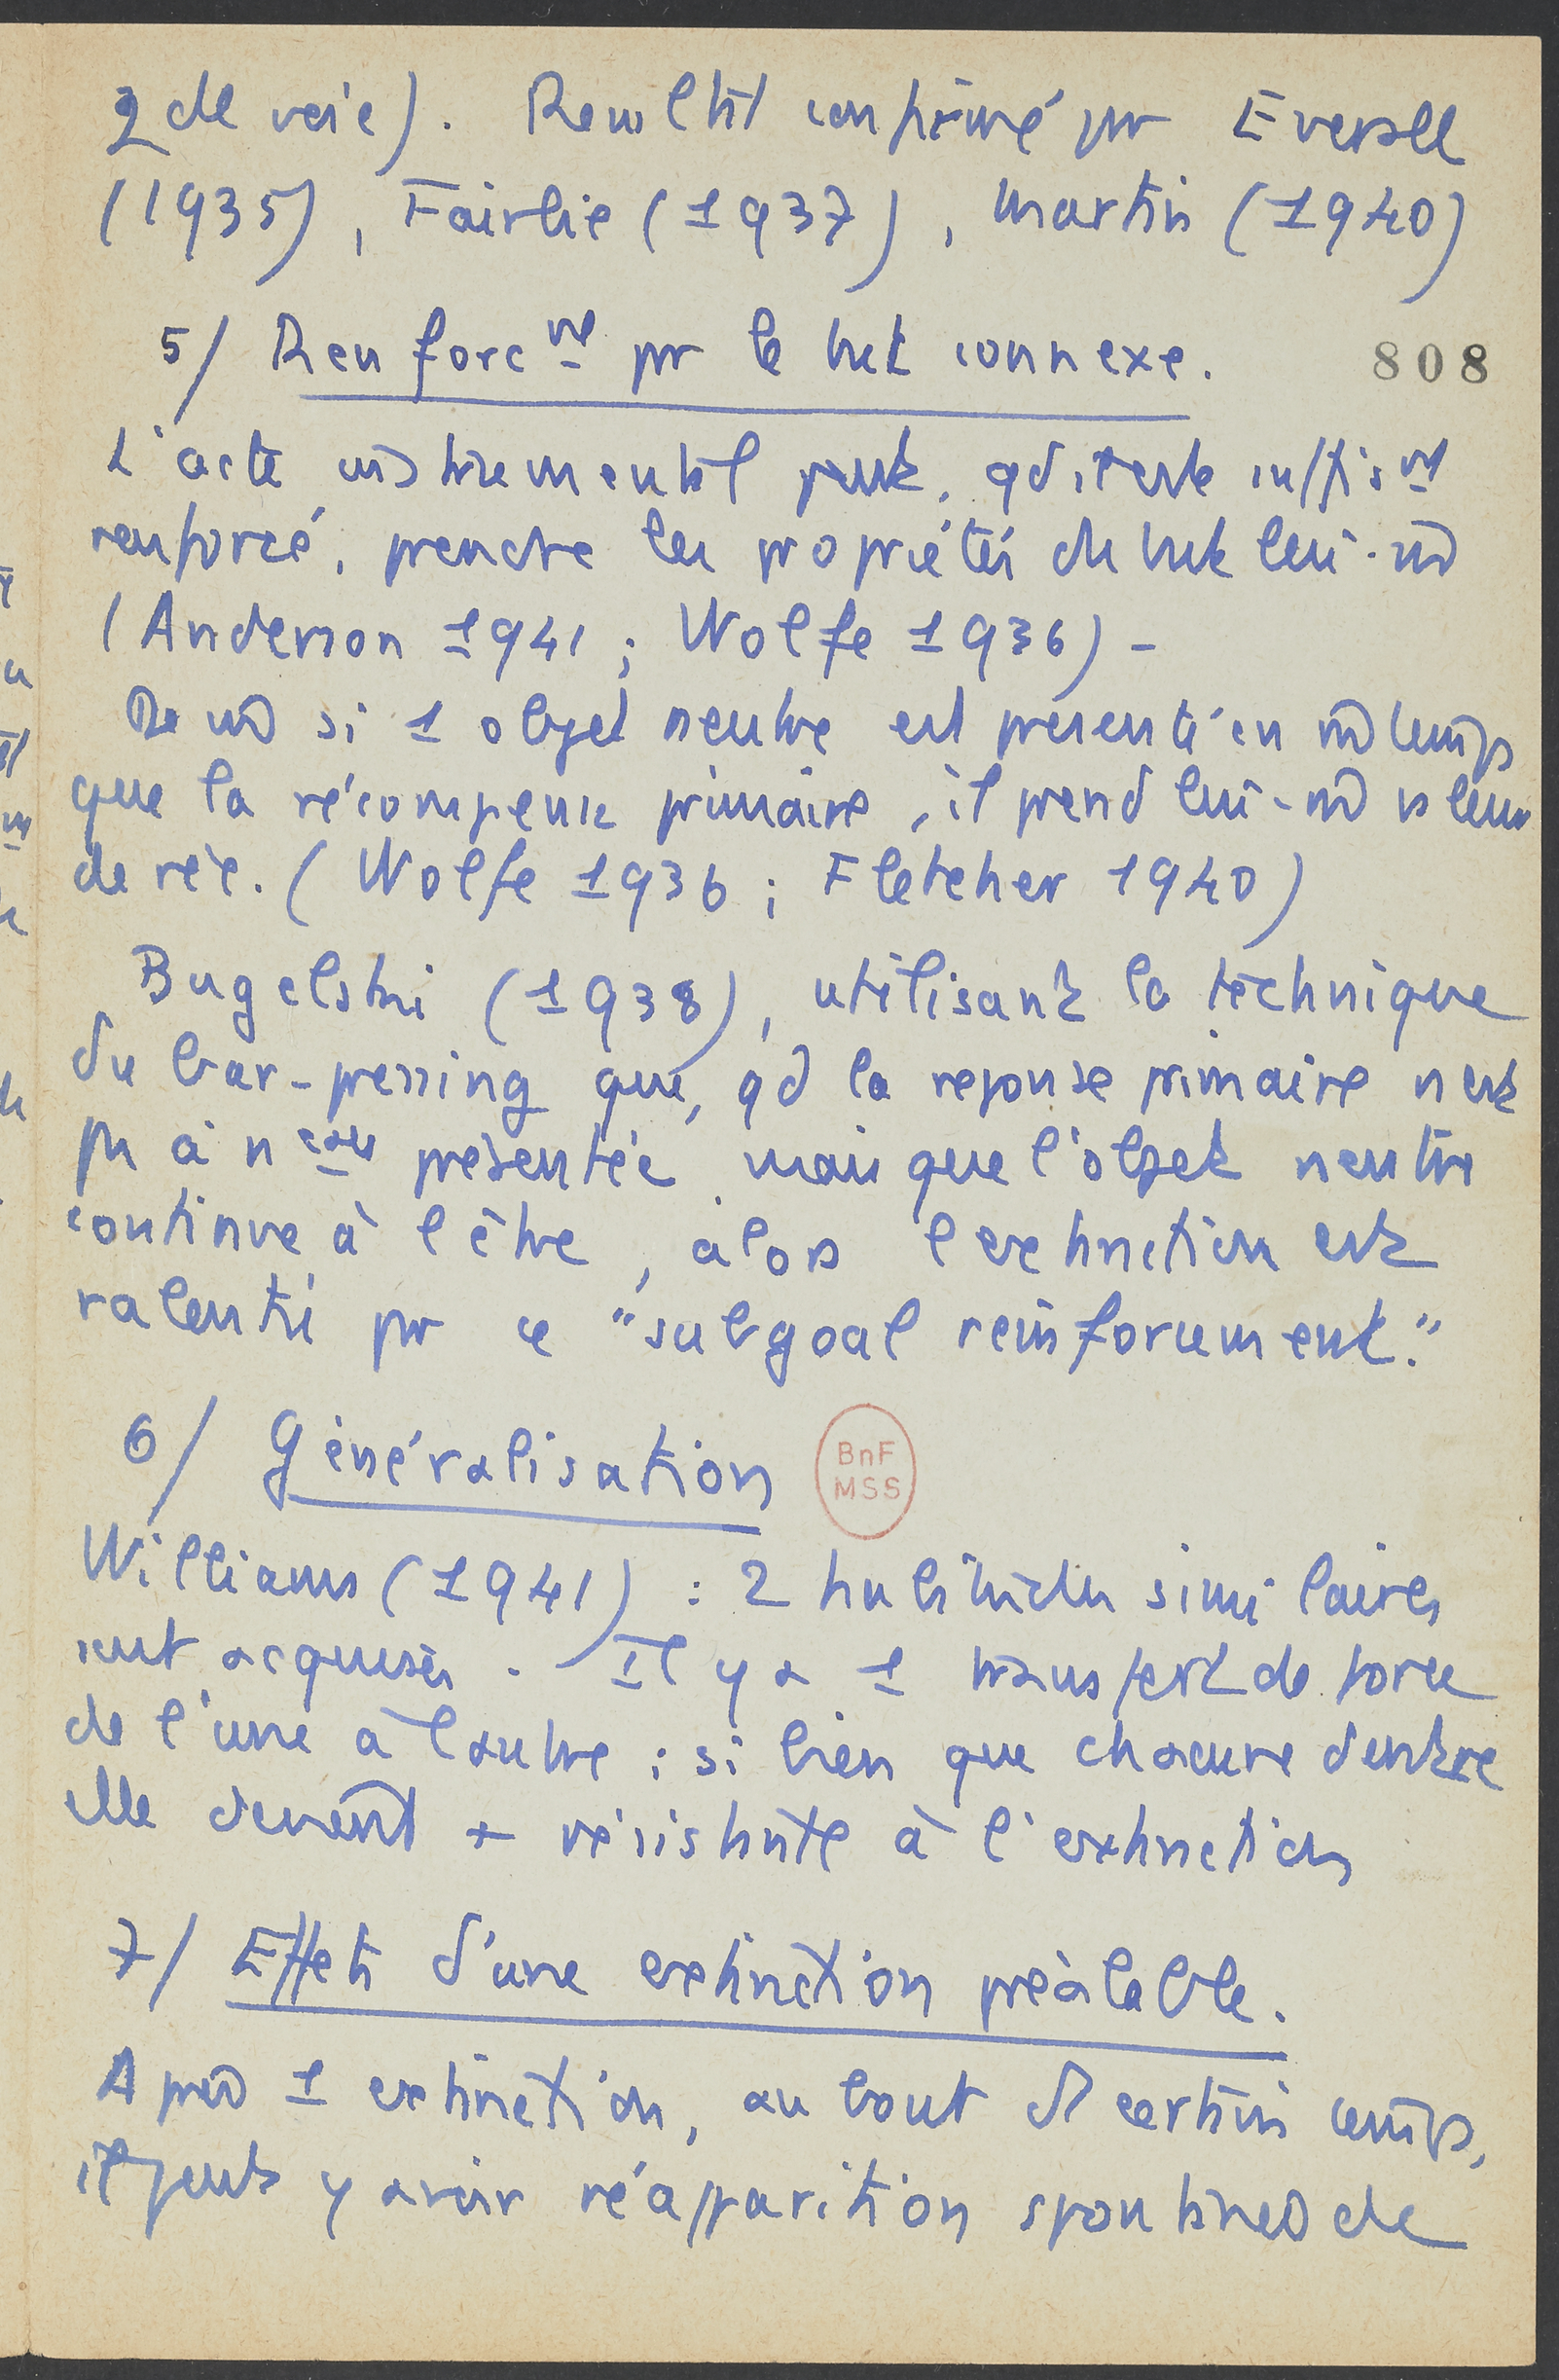 2 de voie). Resultat confirmé pr Eversell
(1935), Fairlie (1937), Martin (1940)
5/ Renforcmt pr le but connexe.
808
L'acte instrumental peut, qd il est suffismt
renforcé, prendre les propriétés du but lui-m̄
(Anderson 1941 ; Wolfe 1936) -
De m̄ si 1 objet neutre est présenté en m̄ temps
que la récompense primaire, il prend lui-m̄ valeur
de réc. (Wolfe 1936 ; Fletcher 1940)
Bugelski (1938), utilisant la technique
du bar-pressing que, qd la reponse primaire n'est
pas à nveau présentée mais que l'objet neutre
continue à l'être, alors l'extinction est
ralentie pr ce "subgoal reinforcement."
6/ Généralisation
BnF
MSS
Williams (1941) : 2 habitudes similaires
sont acquises. Il y a 1 transfert de force
de l'une à l'autre ; si bien que chacune d'entre
elle devient + résistante à l'extinction
7/ Effets d'une extinction préalable.
Après 1 extinction, au bout d'1 certain temps,
il peut y avoir réapparition spontanée de